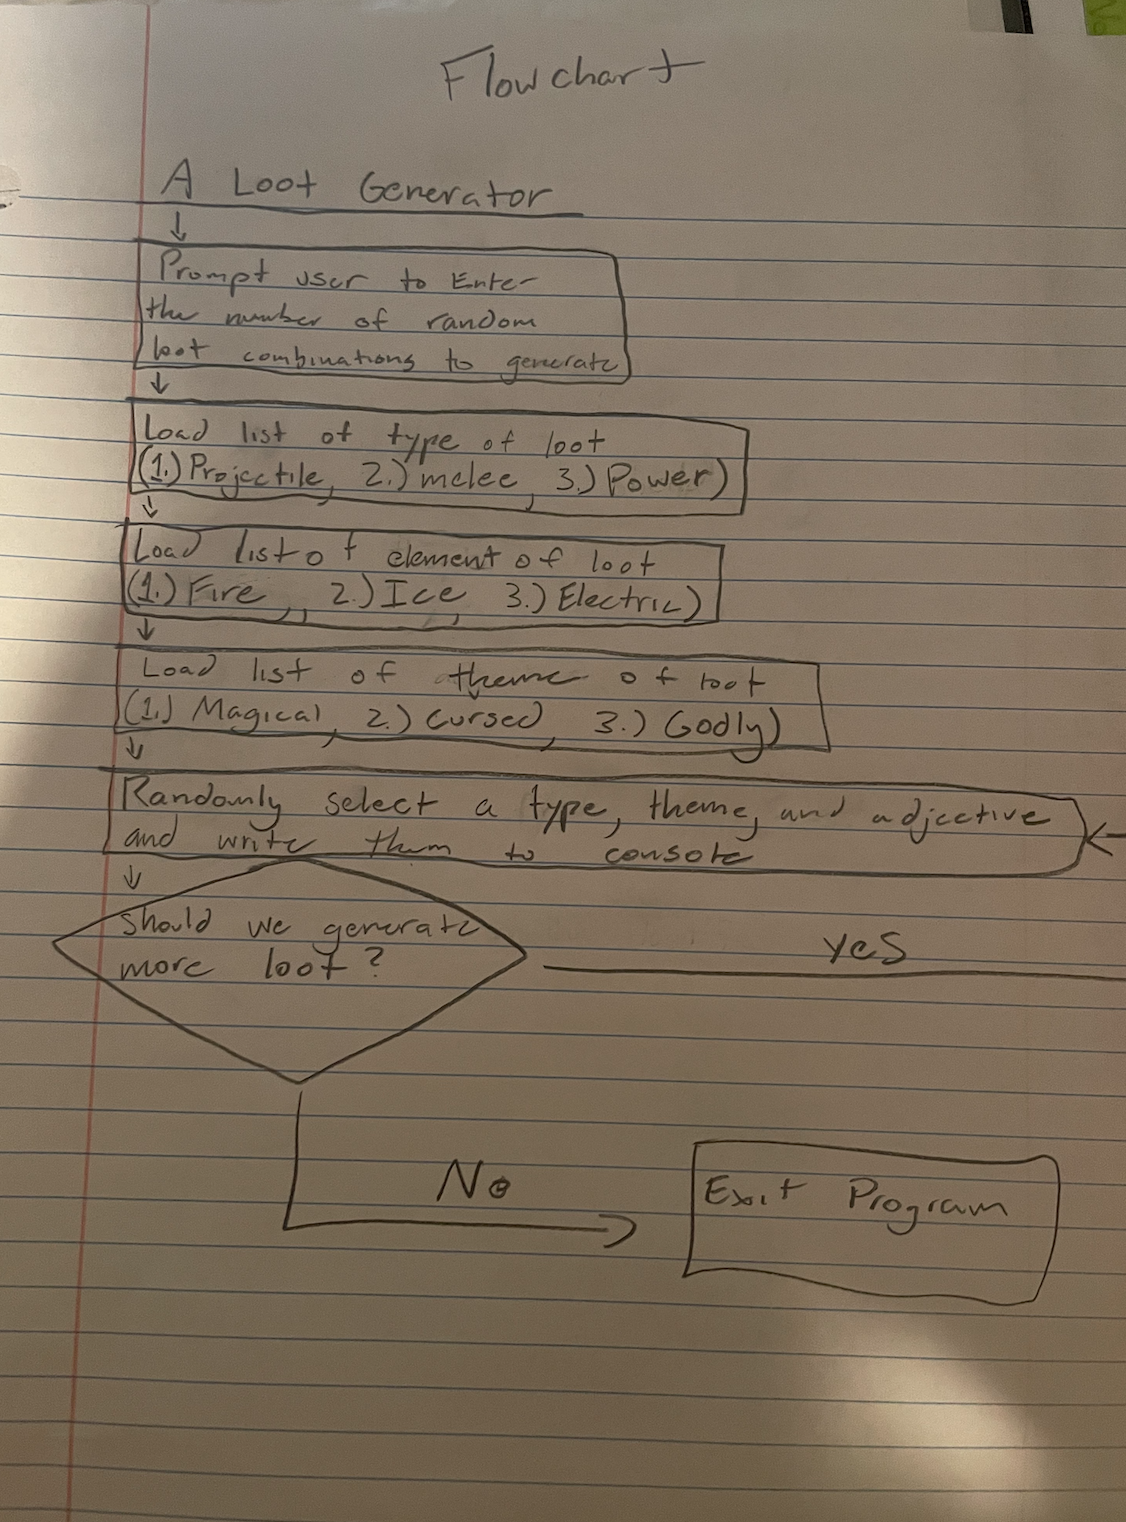 Flowchart
A Loot Generator
Prompt user to Enter
the number of random
loot combinations to generate
Load list of type of loot
(1.) Projectile, 2.) melee, 3.) Power)
Load list of element of loot
(1.) Fire, 2.) Ice, 3.) Electric)
Load list of theme of loot
(1.) Magical, 2.) Cursed, 3.) Godly)
Randomly select a type, theme, and adjective
and write them to console
should we generate
more loot?
yes
No
Exit Program